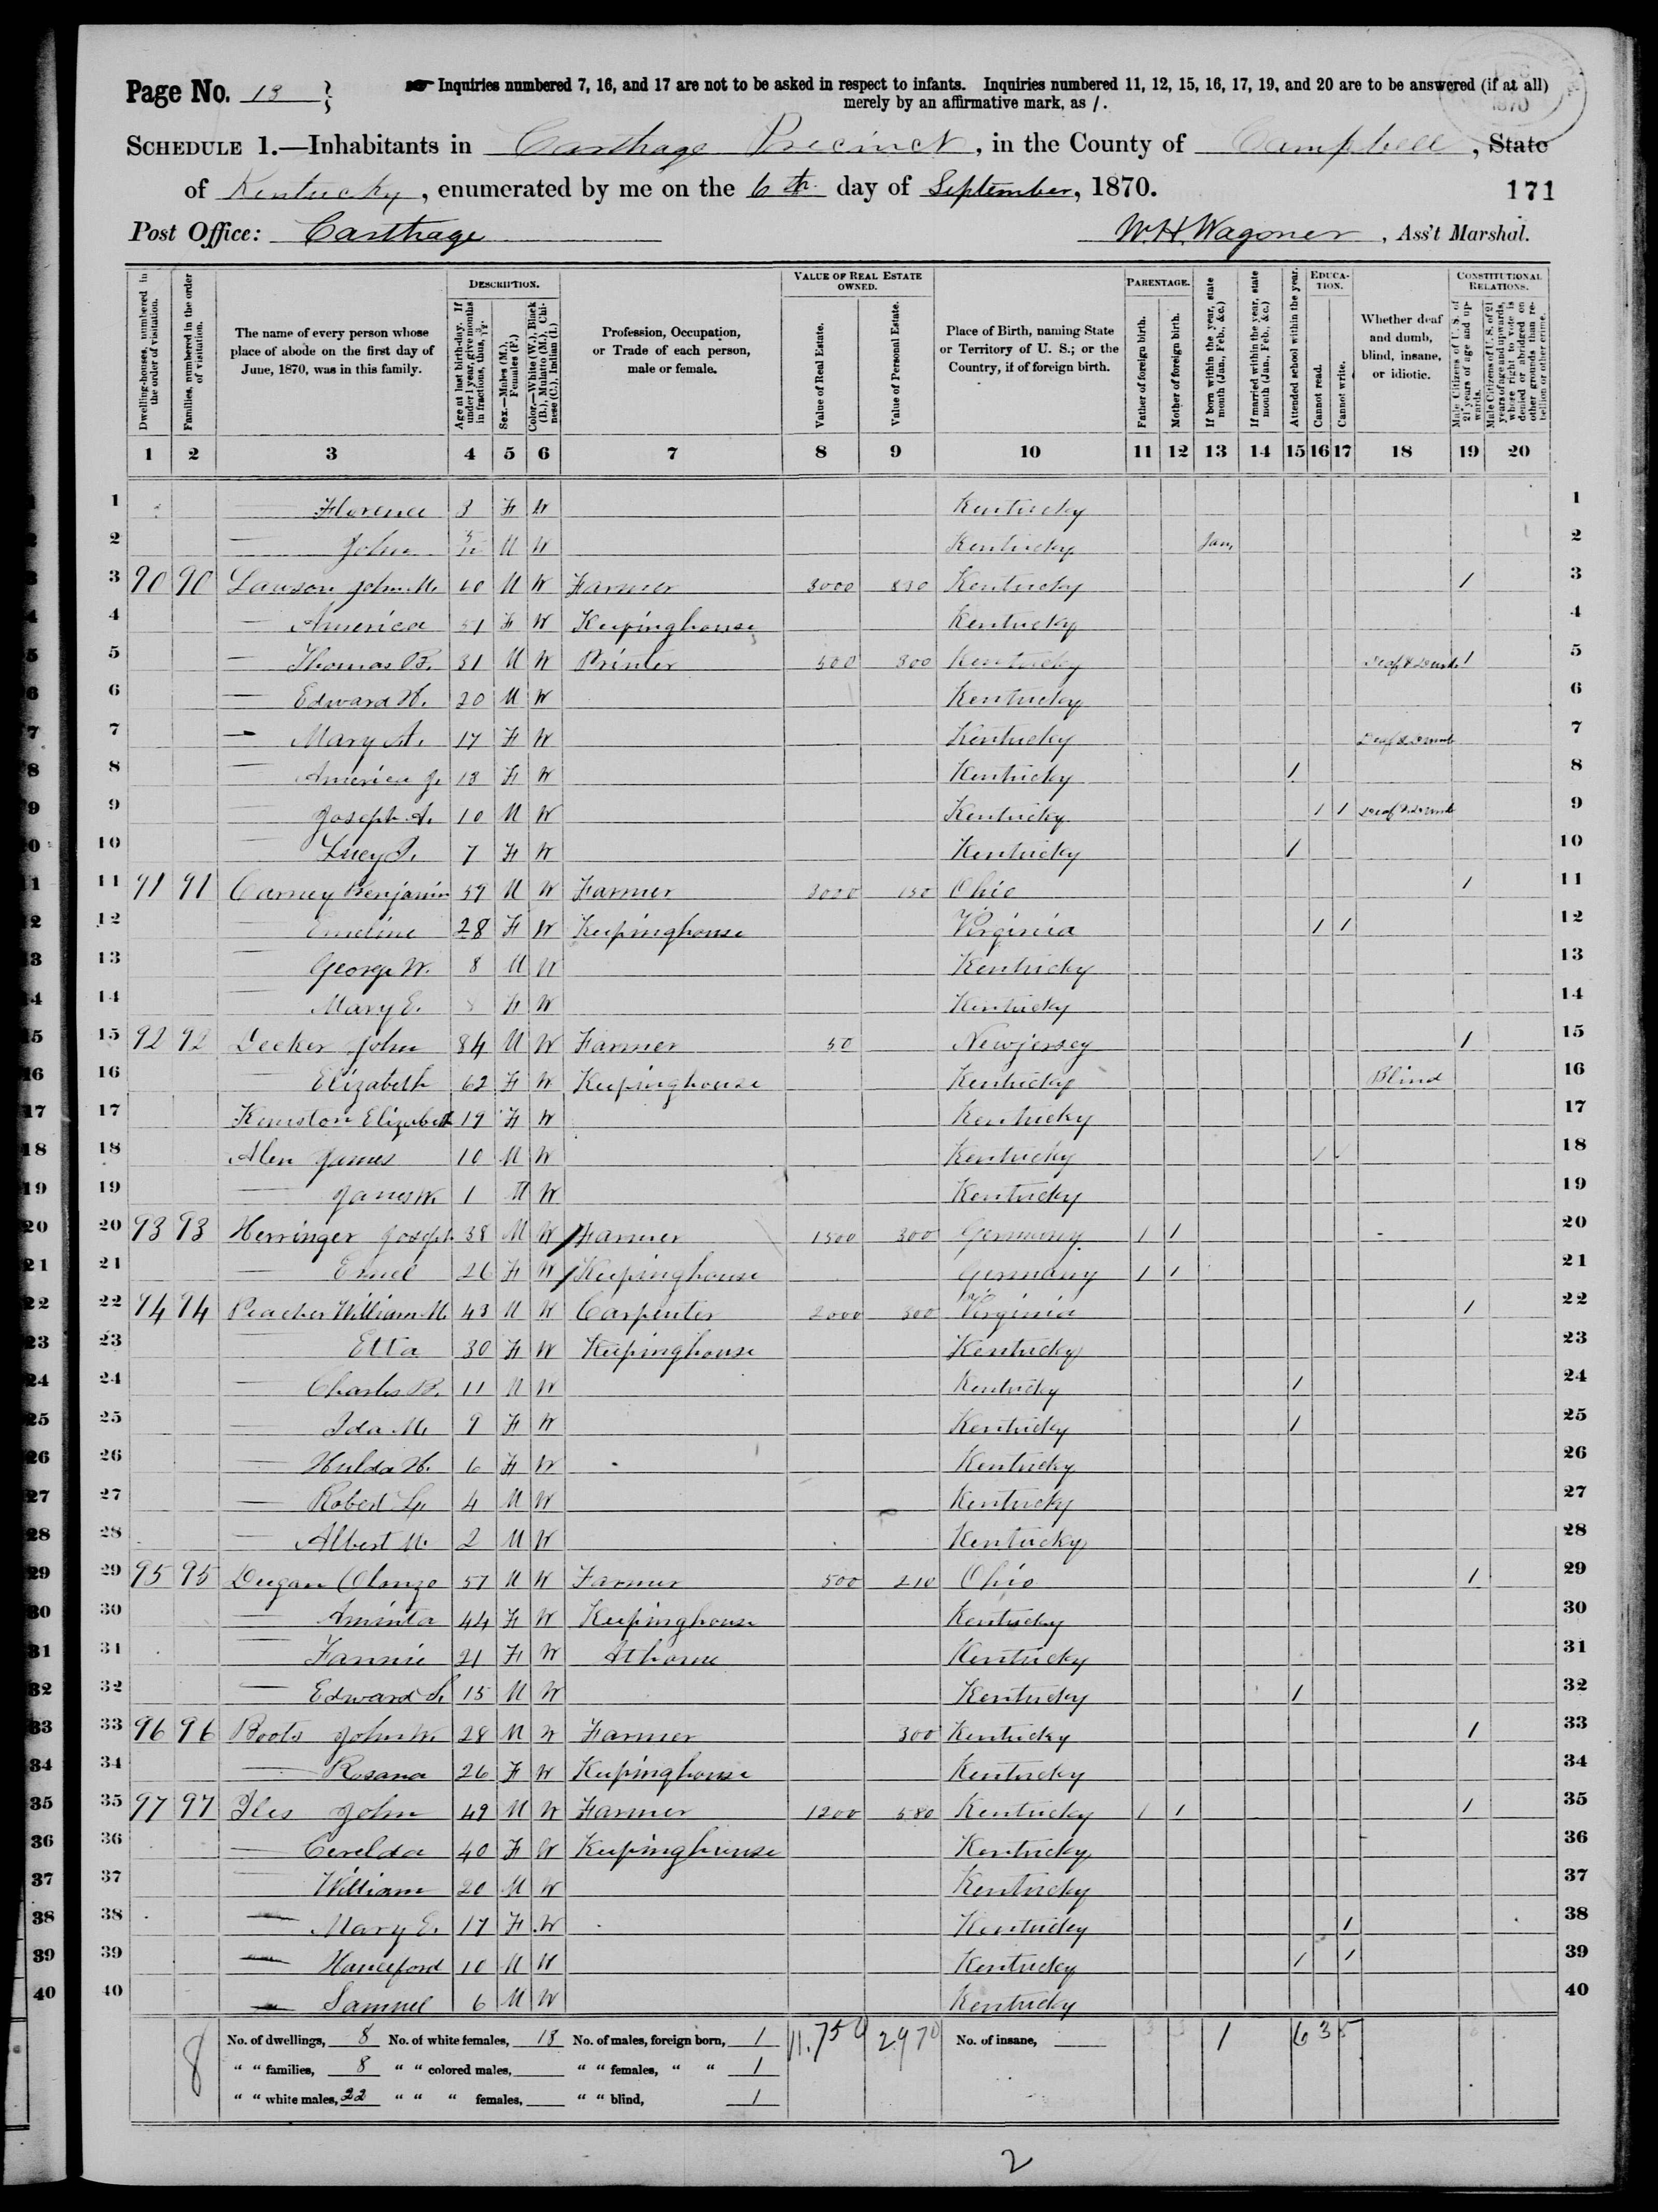 Page No. 13 } Inquiries numbered 7, 16, and 17 are not to be asked in respect to infants. Inquiries numbered 11, 12, 15, 16, 17, 19, and 20 are to be answered (if at all)
merely by an affirmative mark, as /.
1870
SCHEDULE 1.—Inhabitants in Carthage Precinct, in the County of Campbell, State
of Kentucky, enumerated by me on the 6th day of September, 1870. 171
Post Office: Carthage W. H. Wagoner, Ass't Marshal.
Dwelling-houses, numbered in the order of visitation.
Families, numbered in the order of visitation.
The name of every person whose place of abode on the first day of June, 1870, was in this family.
DESCRIPTION.
Age at last birth-day. If under 1 year, give months in fractions, thus, 3/12.
Sex.—Males (M.), Females (F.)
Color.—White (W.), Black (B.), Mulatto (M.), Chinese (C.), Indian (I.)
Profession, Occupation, or Trade of each person, male or female.
VALUE OF REAL ESTATE OWNED.
Value of Real Estate.
Value of Personal Estate.
Place of Birth, naming State or Territory of U. S.; or the Country, if of foreign birth.
PARENTAGE.
Father of foreign birth.
Mother of foreign birth.
If born within the year, state month (Jan., Feb., &c.)
If married within the year, state month (Jan., Feb., &c.)
EDUCATION.
Attended school within the year.
Cannot read.
Cannot write.
Whether deaf and dumb, blind, insane, or idiotic.
CONSTITUTIONAL RELATIONS.
Male Citizens of U. S. of 21 years of age and upwards.
Male Citizens of U. S. of 21 years of age and upwards, whose right to vote is denied or abridged on other grounds than rebellion or other crime.
1 2 3 4 5 6 7 8 9 10 11 12 13 14 15 16 17 18 19 20
1 — Florence 3 F W Kentucky 1
2 — John M W Kentucky Jan. 2
3 90 90 Lawson John M. 60 M W Farmer 3000 Kentucky / 3
4 — America 51 F W Keepinghouse Kentucky 4
5 — Thomas B. 31 M W Printer 300 Kentucky Deaf & Dumb / 5
6 — Edward H. 20 M W Kentucky 6
7 — Mary A. 17 F W Kentucky Deaf & Dumb 7
8 — America J. 13 F W Kentucky / 8
9 — Joseph A. 10 M W Kentucky / / Deaf & Dumb 9
10 — Lucy 7 F W Kentucky / 10
11 91 91 Carney Benjamin M W Farmer 3000 150 Ohio / 11
12 — Emeline 28 F W Keepinghouse Virginia / / 12
13 — George W. 8 M W Kentucky 13
14 — Mary E. F W Kentucky 14
15 92 92 Decker John 84 M W Farmer 50 New jersey / 15
16 — Elizabeth 62 F W Keepinghouse Kentucky Blind 16
17 Keniston Elizabeth 19 F W Kentucky 17
18 Alen James 10 M W Kentucky / / 18
19 — James W. 1 M W Kentucky 19
20 93 93 Herringer Joseph 38 M W / Farmer 1500 300 Germany / / 20
21 — 26 F W / Keepinghouse Germany / / 21
22 94 94 Peacher William M. 43 M W Carpenter 2000 300 Virginia / 22
23 — Etta 30 F W Keepinghouse Kentucky 23
24 — Charles B. 11 M W Kentucky / 24
25 — Ida M. 9 F W Kentucky / 25
26 — Hulda H. 6 F W Kentucky 26
27 — Robert L. 4 M W Kentucky 27
28 — Albert M. 2 M W Kentucky 28
29 95 95 Dugan Olonzo 57 M W Farmer 500 210 Ohio / 29
30 — Aminta 44 F W Keepinghouse Kentucky 30
31 — Fannie 21 F W At home Kentucky 31
32 — Edward S. 15 M W Kentucky / 32
33 96 96 Boots John W. 28 M W Farmer 300 Kentucky / 33
34 — Rosana 26 F W Keepinghouse Kentucky 34
35 97 97 Iles John 49 M W Farmer 1200 580 Kentucky / / / 35
36 — Cerelda 40 F W Keepinghouse Kentucky 36
37 — William 20 M W Kentucky 37
38 — Mary E. 17 F W Kentucky / 38
39 — Hanceford 10 M W Kentucky / / 39
40 — Samuel 6 M W Kentucky 40
8 No. of dwellings, 8 No. of white females, 18 No. of males, foreign born, 1 11.750 2970 No. of insane, 3 3 1 6 3 5
" " families, 8 " " colored males, " " females, " " 1
" " white males, 22 " " " females, " " blind, 1
2